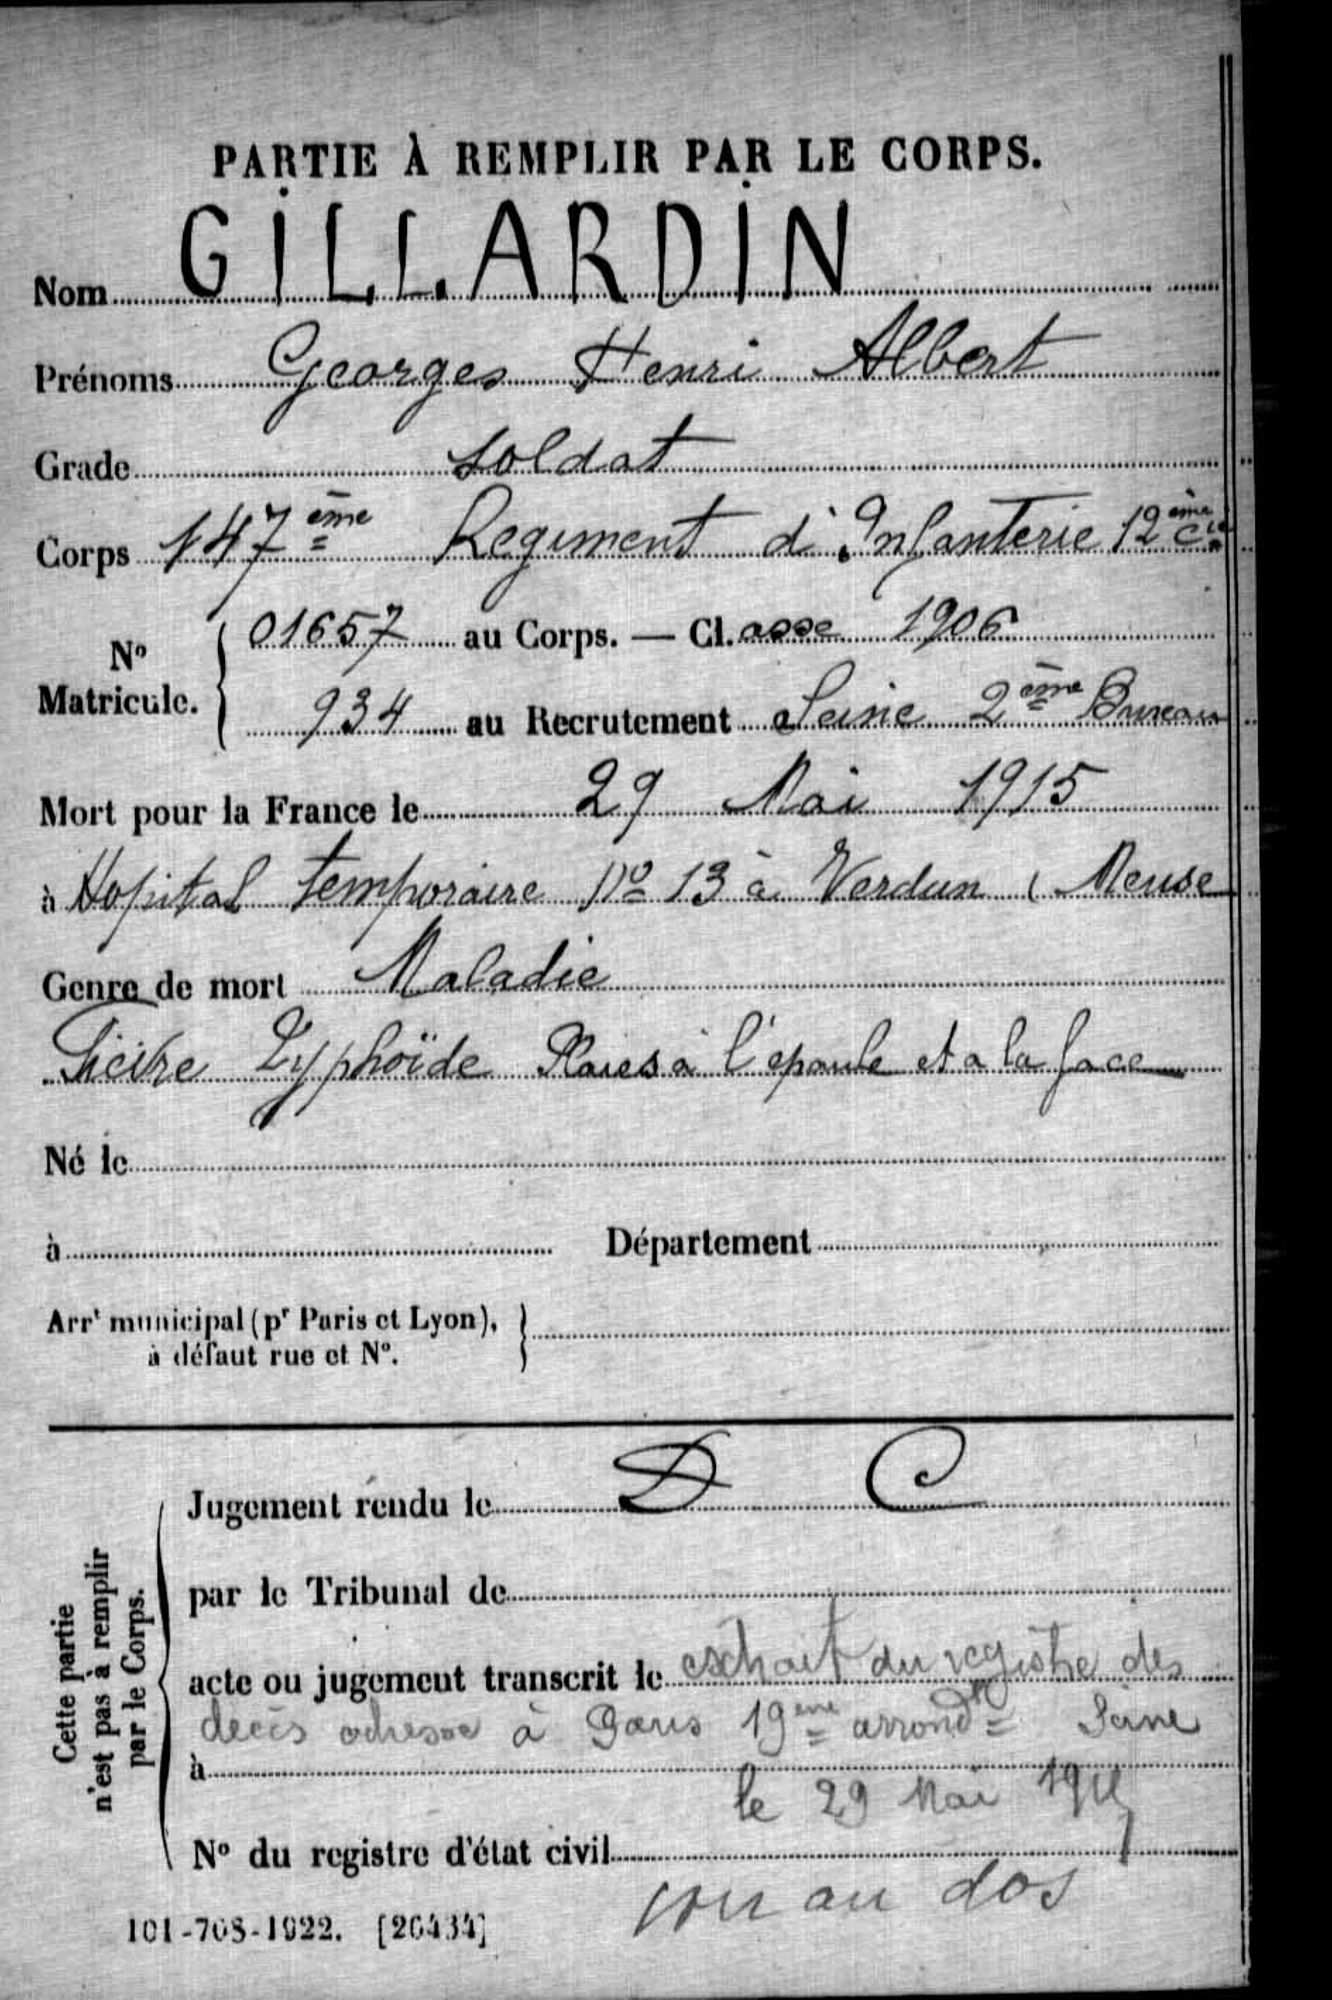 PARTIE À REMPLIR PAR LE CORPS.
Nom GILLARDIN
Prénoms Georges Henri Albert
Grade Soldat
Corps 147ème Regiment d'Infanterie 12ème Cie
Nº Matricule. 01657 au Corps. — Cl.asse 1906
934 au Recrutement Seine 2ème Bureau
Mort pour la France le 29 Mai 1915
à Hopital temporaire Nº 13 à Verdun ( Meuse
Genre de mort Maladie
Fièvre Typhoïde Plaies à l'épaule et a la face
Né le
à Département
Arrt municipal (pr Paris et Lyon),
à défaut rue et Nº.
Cette partie
n'est pas à remplir
par le Corps.
Jugement rendu le D C
par le Tribunal de
acte ou jugement transcrit le extrait du registre des
décès adressé à Paris 19ème arrondt Seine
à
le 29 Mai
Nº du registre d'état civil
voir au dos
101-708-1922. [26434]